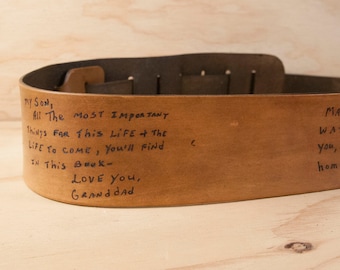 My Son,
All The Most Important
Things For This Life & the
Life to Come, You'll Find
In This Book-
Love You,
Granddad
Ma
wa
you,
hom